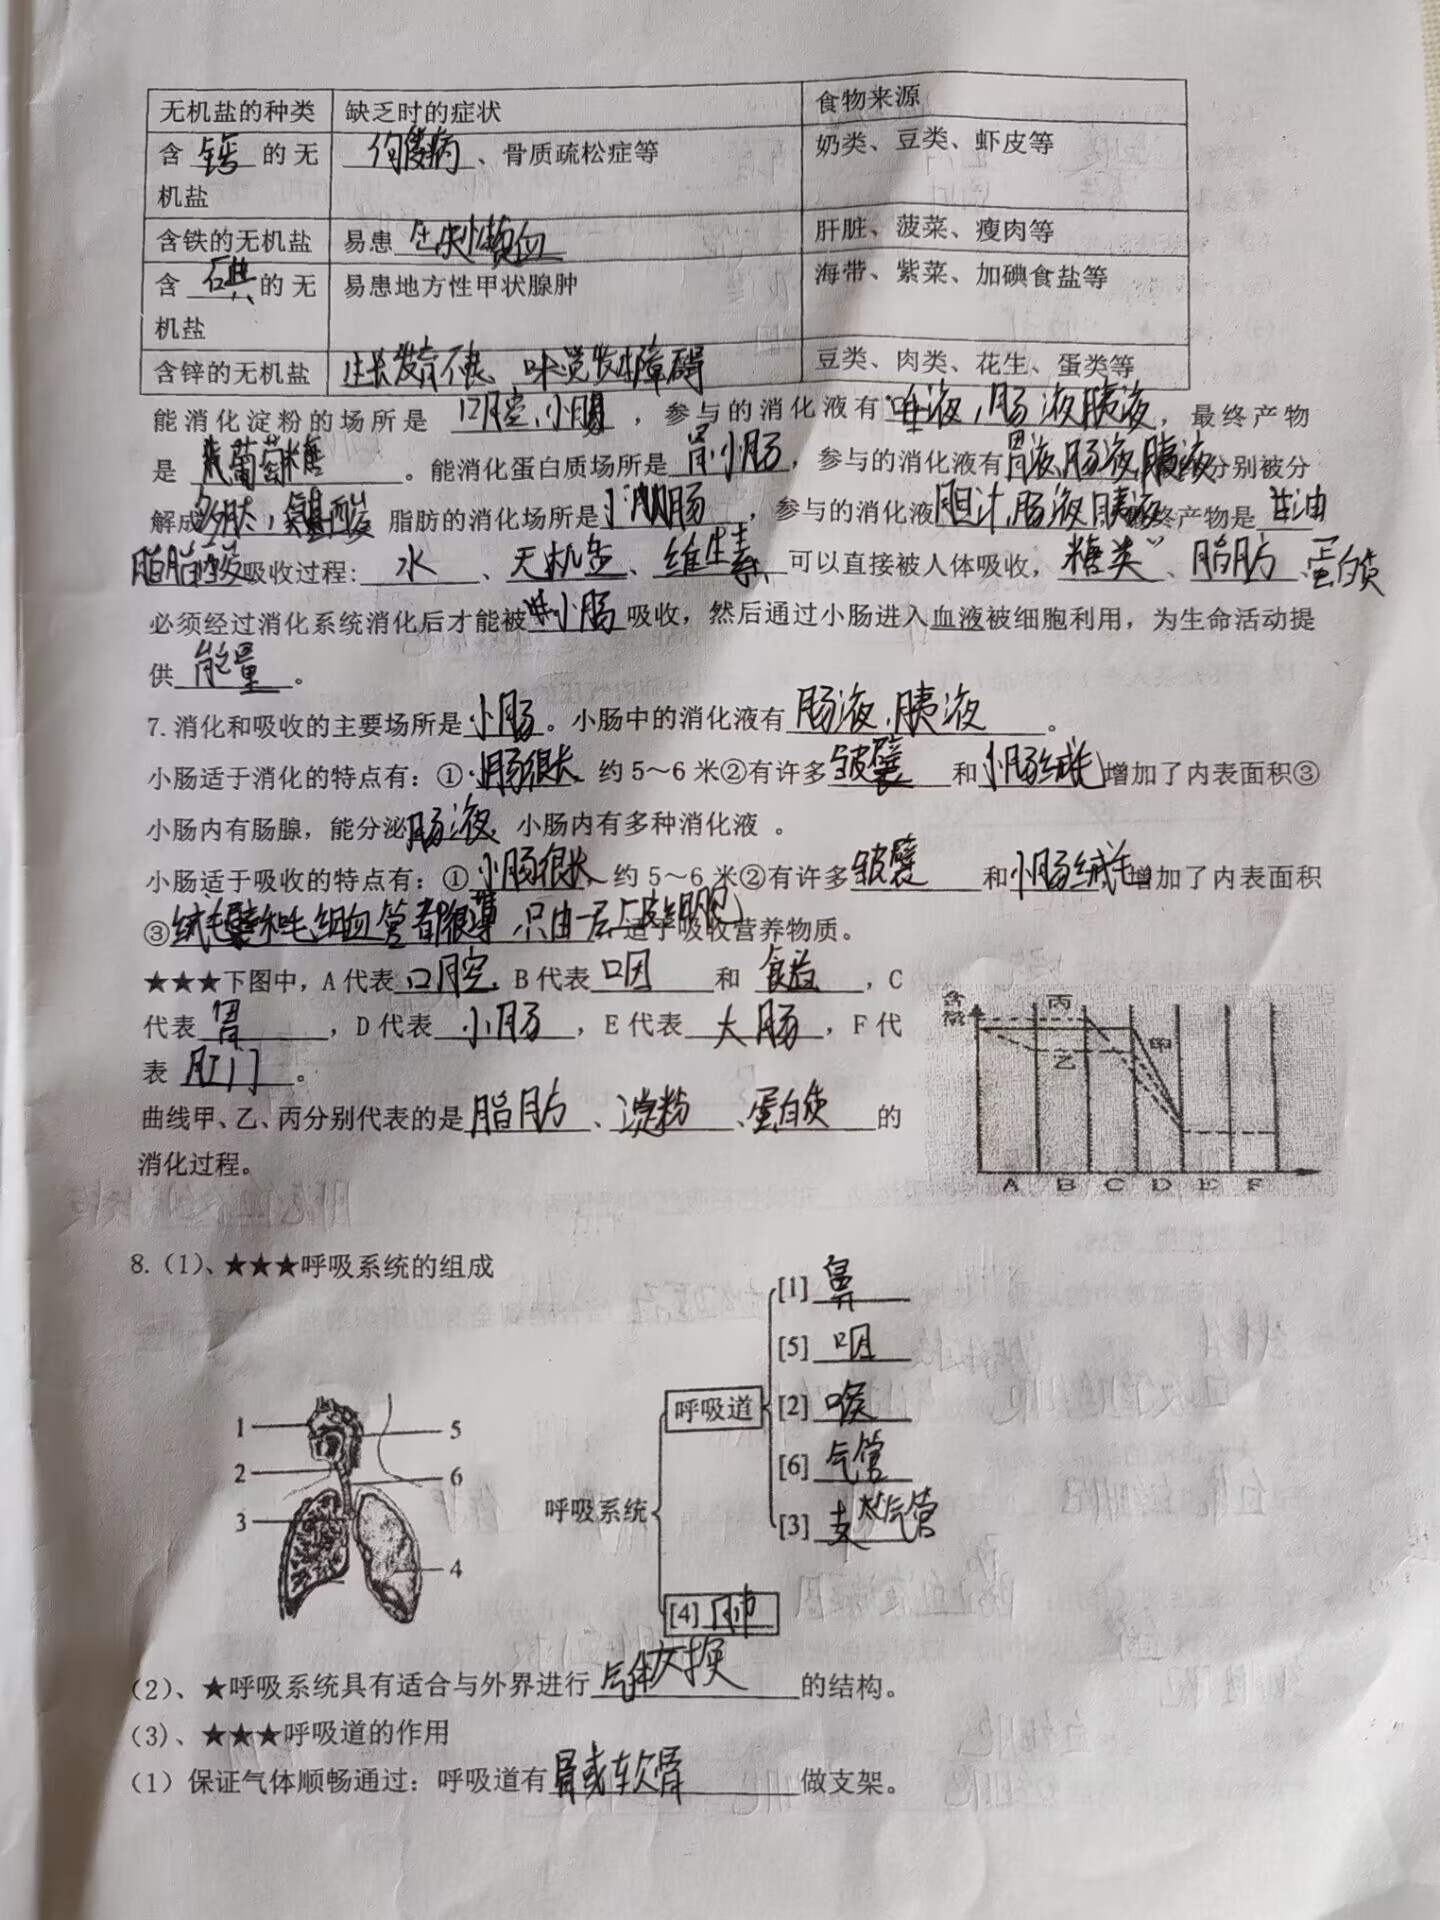 无机盐的种类 缺乏时的症状 食物来源
含 钙 的无机盐 佝偻病、骨质疏松症等 奶类、豆类、虾皮等
含铁的无机盐 易患 缺铁性贫血 肝脏、菠菜、瘦肉等
含 碘 的无机盐 易患地方性甲状腺肿 海带、紫菜、加碘食盐等
含锌的无机盐 生长发育不良、味觉发生障碍 豆类、肉类、花生、蛋类等
能消化淀粉的场所是 口腔、小肠 ，参与的消化液有唾液,肠液胰液，最终产物
是 葡萄糖 。能消化蛋白质场所是 胃小肠，参与的消化液有胃液,肠液,胰液分别被分
解成多肽,氨基酸 脂肪的消化场所是小肠，参与的消化液胆汁,肠液胰液终产物是甘油
脂肪酸吸收过程: 水、无机盐、维生素可以直接被人体吸收，糖类、脂肪、蛋白质
必须经过消化系统消化后才能被小肠吸收，然后通过小肠进入血液被细胞利用，为生命活动提
供 能量。
7.消化和吸收的主要场所是小肠。小肠中的消化液有肠液、胰液。
小肠适于消化的特点有：①小肠很长 约5～6米②有许多皱襞和小肠绒毛增加了内表面积③
小肠内有肠腺，能分泌肠液 小肠内有多种消化液 。
小肠适于吸收的特点有：①小肠很长，约5～6米②有许多皱襞和小肠绒毛增加了内表面积
③绒毛壁和毛细血管都很薄,只由一层上皮细胞适于吸收营养物质。
★★★下图中，A代表口腔，B代表 咽 和 食道，C
代表 胃 ，D代表 小肠 ，E代表 大肠，F代
表 肛门。
曲线甲、乙、丙分别代表的是脂肪、淀粉、蛋白质的
消化过程。
含量 丙 甲 乙
A B C D E F
8.（1）、★★★呼吸系统的组成
[1] 鼻
[5] 咽
呼吸道
[2] 喉
[6] 气管
呼吸系统
[3] 支气管
[4] 肺
1 5
2 6
3
4
（2）、★呼吸系统具有适合与外界进行气体交换的结构。
（3）、★★★呼吸道的作用
（1）保证气体顺畅通过：呼吸道有骨或软骨做支架。